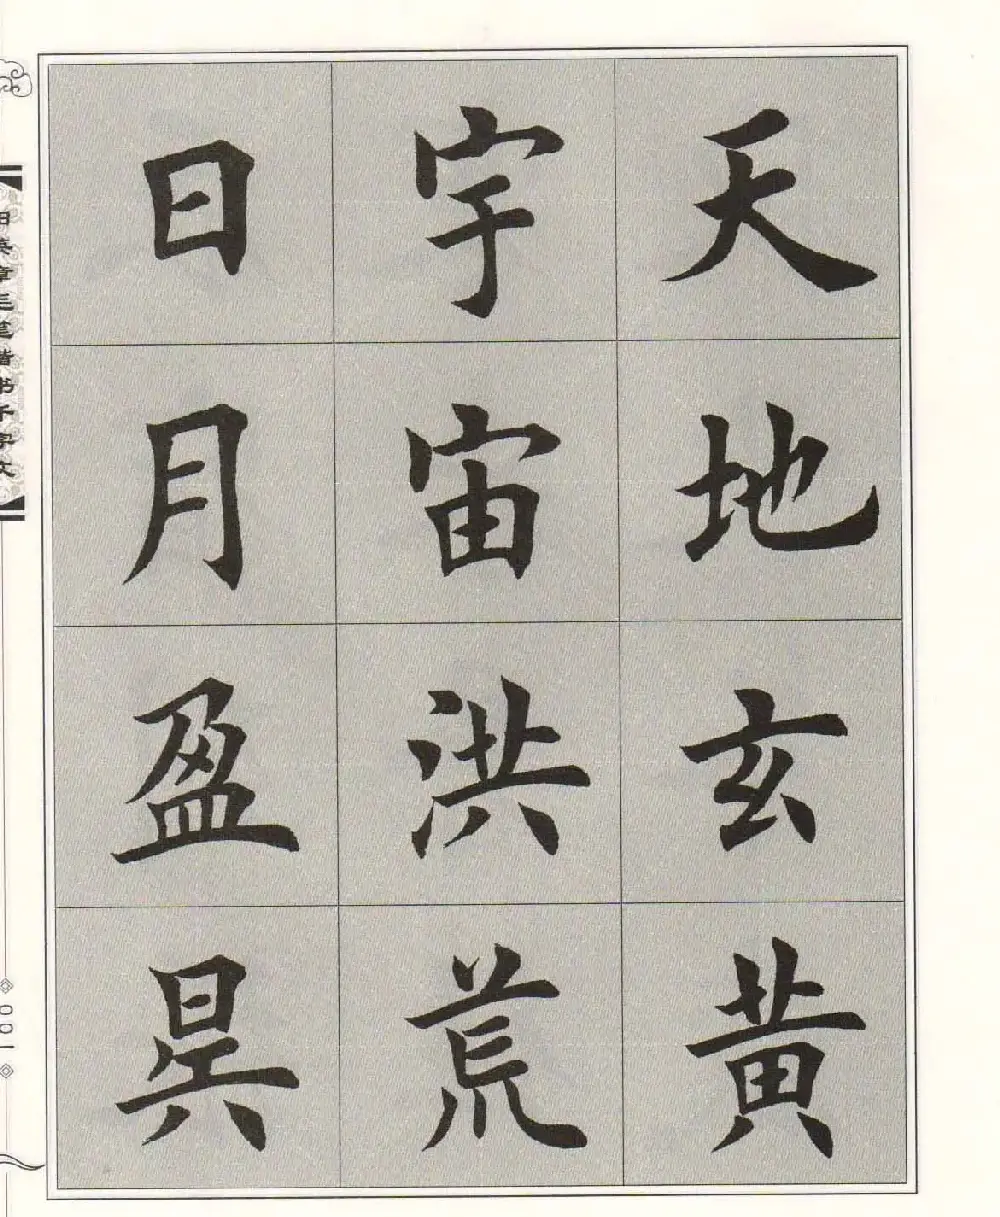 天地玄黄
宇宙洪荒
日月盈昗
田英章毛笔楷书千字文
001